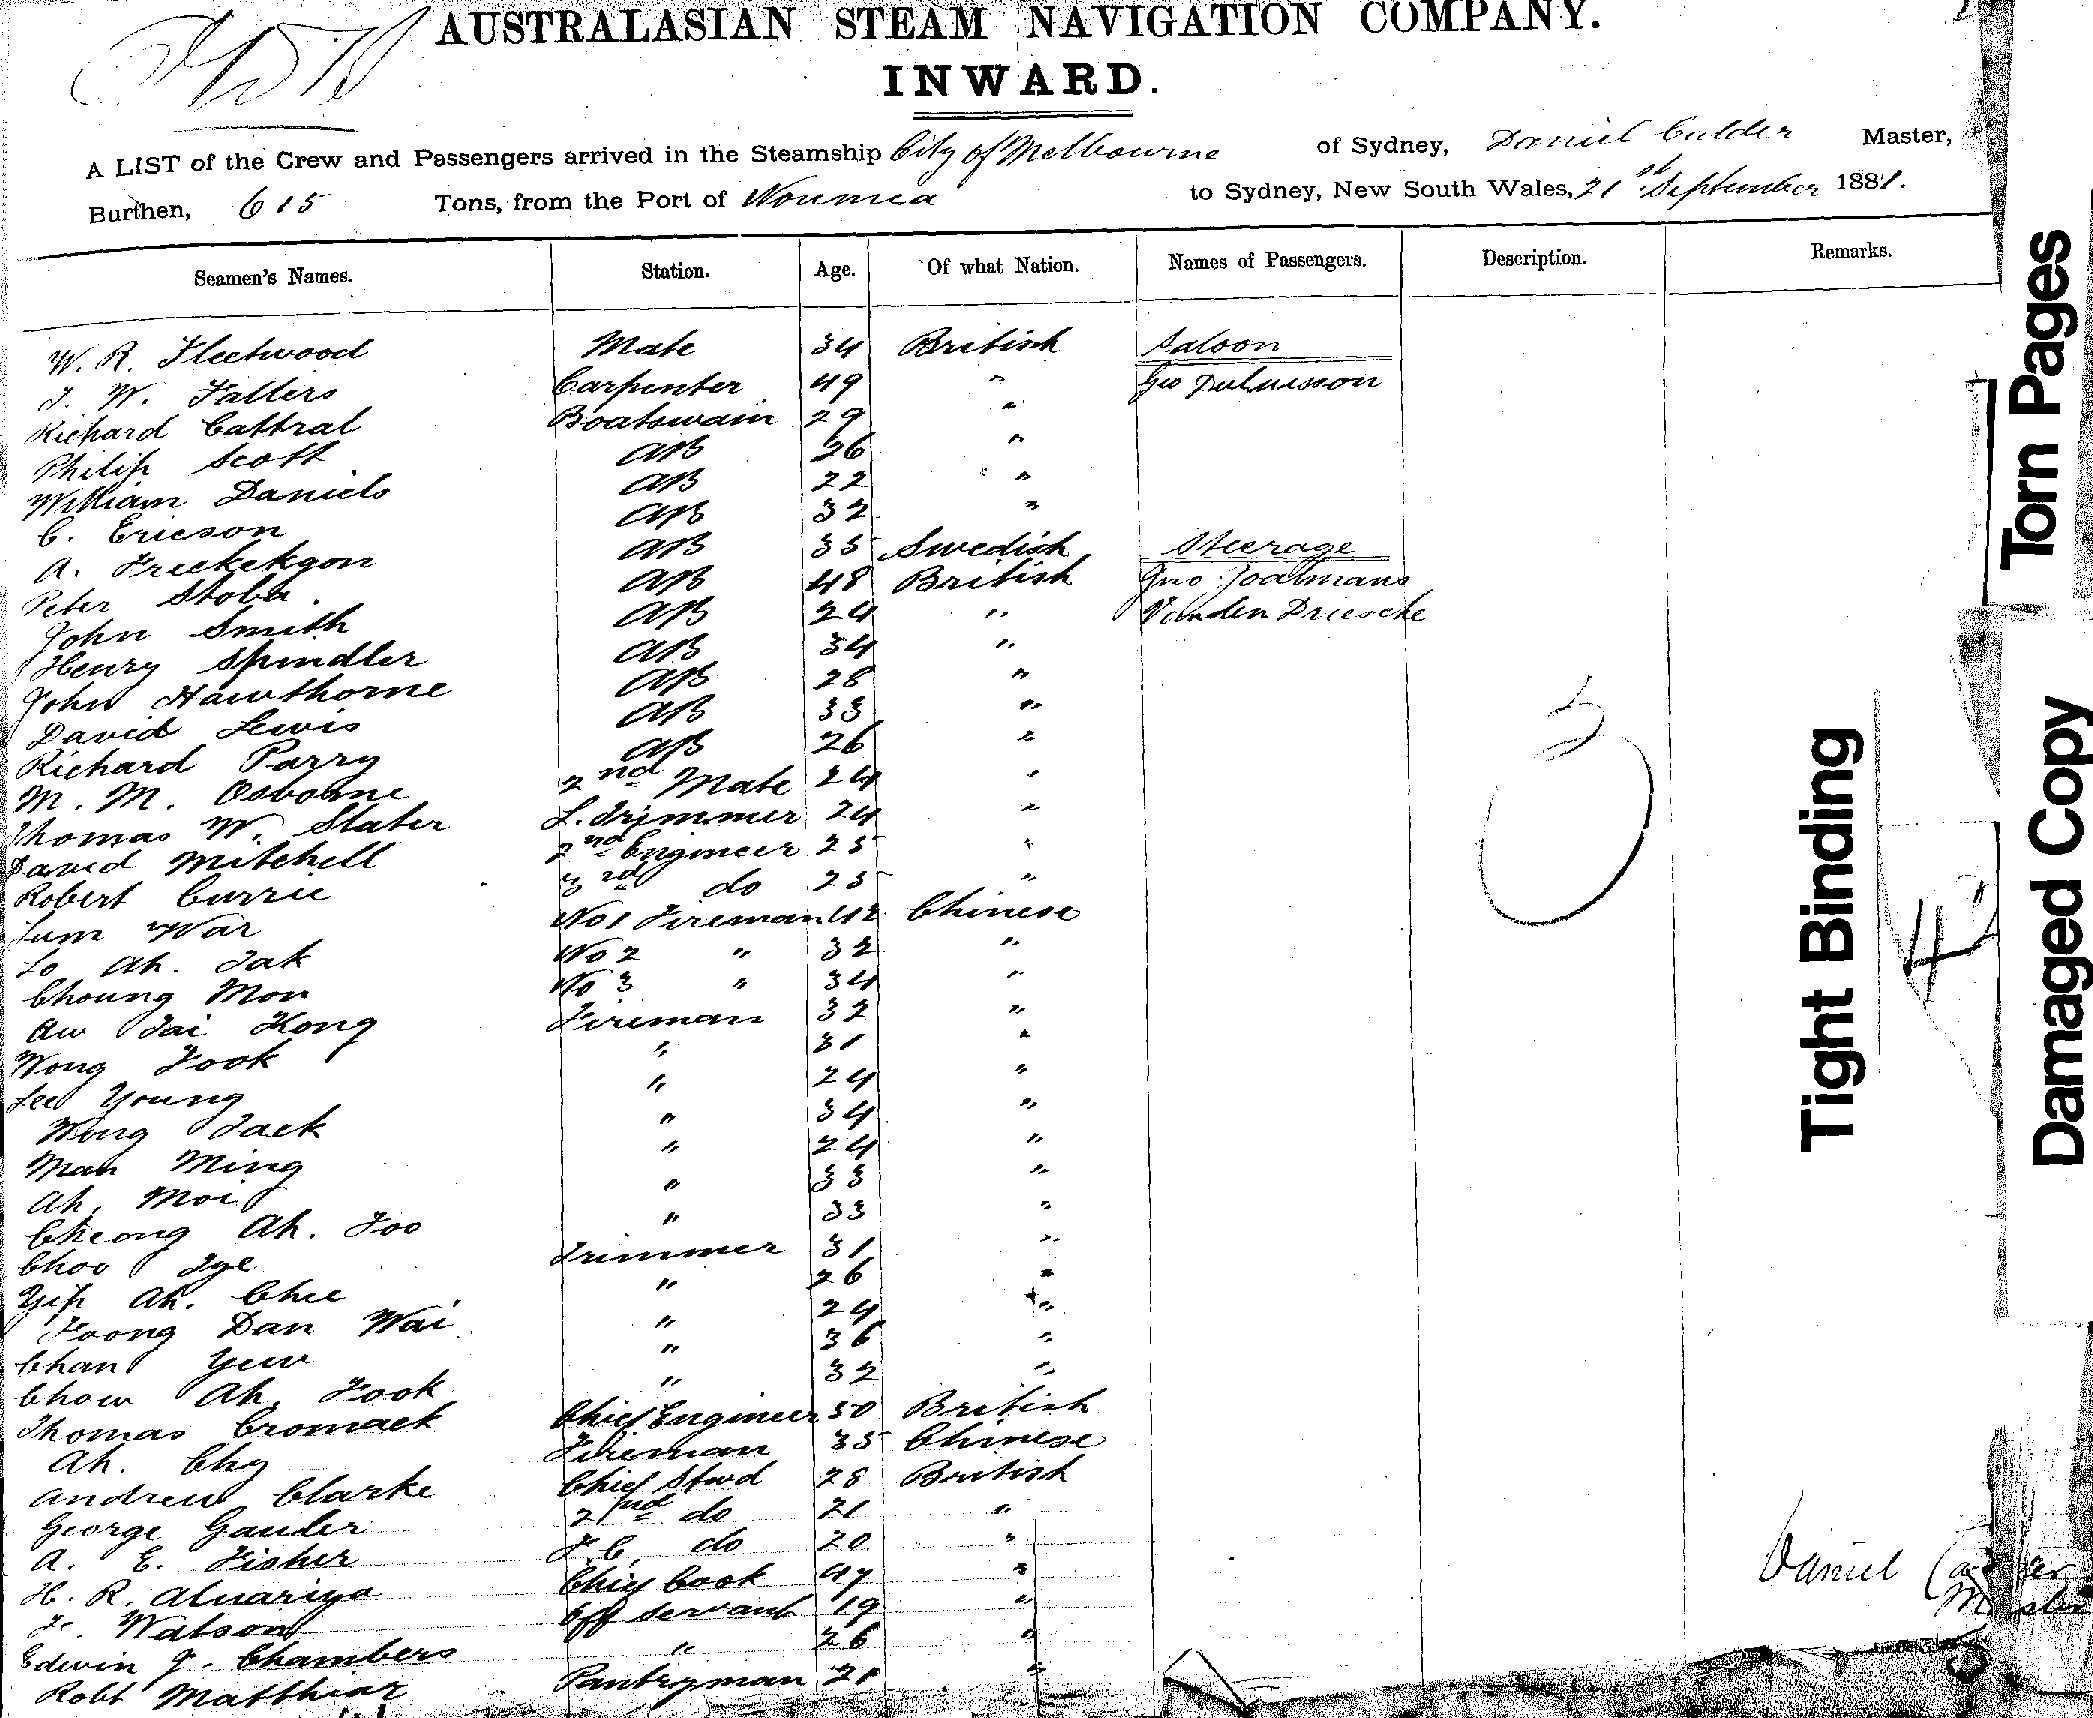 AUSTRALASIAN STEAM NAVIGATION COMPANY.
INWARD.
A LIST of the Crew and Passengers arrived in the Steamship City of Melbourne of Sydney, Daniel Calder Master,
Burthen, 615 Tons, from the Port of Noumea to Sydney, New South Wales, 21st September 1881.
Seamen's Names. Station. Age. Of what Nation. Names of Passengers. Description. Remarks.
W. R. Fleetwood Mate 34 British Saloon
J. W. Falters Carpenter 49 " Geo
Richard Cattral Boatswain 29 "
Philip Scott AB 26 "
William Daniels AB 22 "
C. Ericson AB 32 "
A. AB 35 Swedish Steerage
Peter AB 48 British Jno
John Smith AB 24 " Vanden Driesche
Henry Spindler AB 34 "
John Hawthorne AB 28 "
David Lewis AB 33 "
Richard Parry AB 26 "
M. M. Osborne 2nd Mate 24 "
Thomas W. Slater L. Trimmer 24 "
David Mitchell 2nd Engineer 25 "
Robert Currie 3rd do 25 "
War No 1 Fireman 42 Chinese
Lo Ah. Tak No 2 " 32 "
Choung Mon No 3 " 34 "
Aw Tai Kong Fireman 32 "
Wong Fook " 31 "
Lee Young " 24 "
Wong Jack " 34 "
Man Ming " 24 "
Ah. Moi " 33 "
Cheong Ah. Foo " 33 "
Choo Trimmer 31 "
Yip Ah. Chee " 26 "
Foong Dan Wai " 24 "
Chan Yew " 36 "
Chow Ah. Fook " 32 "
Thomas Cromack Chief Engineer 50 British
Ah. Chy Fireman 35 Chinese
Andrew Clarke Chief Stwd 28 British
George Gauder 2nd do 21 "
A. E. Fisher F C do 20 "
H. R. Chief Cook 47 "
Watson Off Servant 19 "
Edwin J. Chambers " 26 "
Robt Matthias Pantryman 21 "
Daniel Calder
Master
Torn Pages
Tight Binding
Damaged Copy